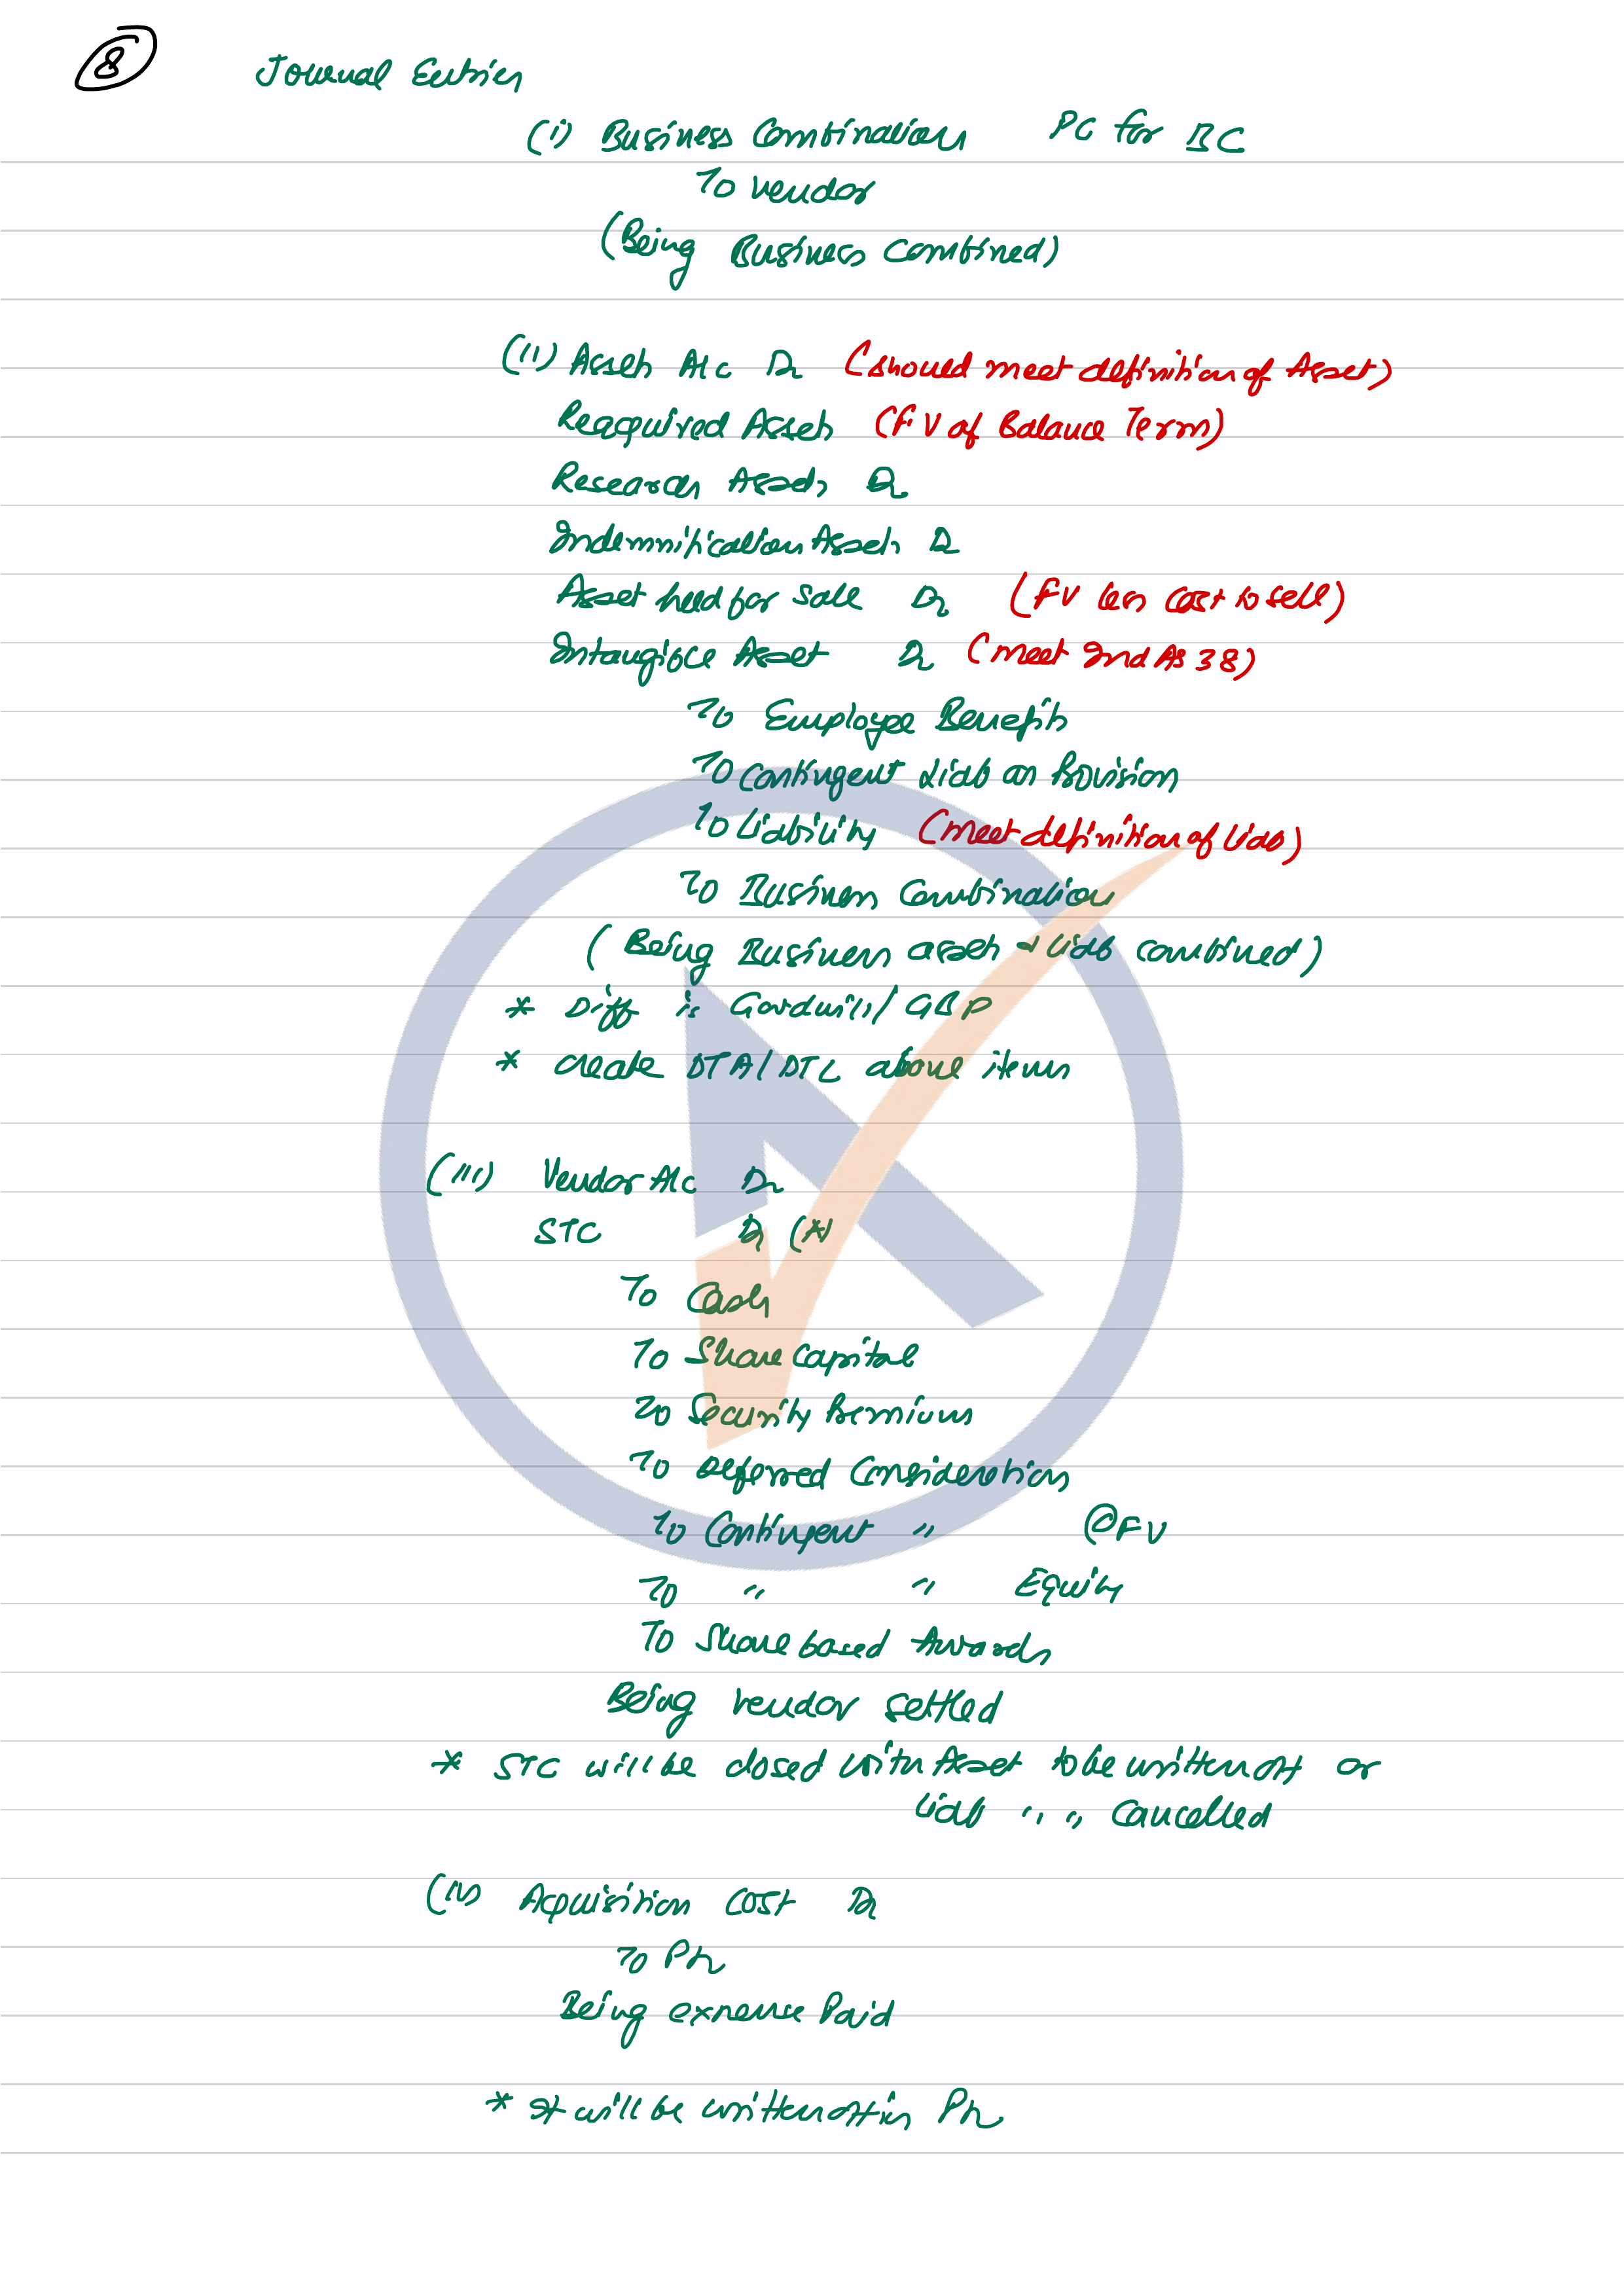 8
Journal Entries
(i) Business Combination PC for BC
To vendor
(Being Business combined)
(ii) Assets A/c Dr (should meet definition of Asset)
Reacquired Asset (FV of Balance Term)
Research Assets Dr
Indemnification Assets Dr
Asset held for sale Dr (FV less cost to sell)
Intangible Asset Dr (meet Ind AS 38)
To Employee Benefits
To contingent Liab on Provision
To Liability (meet definition of Liab)
To Business Combination
(Being Business assets & Liab combined)
* Diff is Goodwill/GBP
* create DTA/DTL above items
(iii) Vendor A/c Dr
STC Dr (*)
To Cash
To Share Capital
To Security Premium
To Deferred Consideration
To Contingent " @FV
To " " Equity
To Share based Awards
Being vendor settled
* STC will be closed with Asset to be written off or
Liab " " Cancelled
(iv) Acquisition Cost Dr
To
Being expense Paid
* It will be written off in